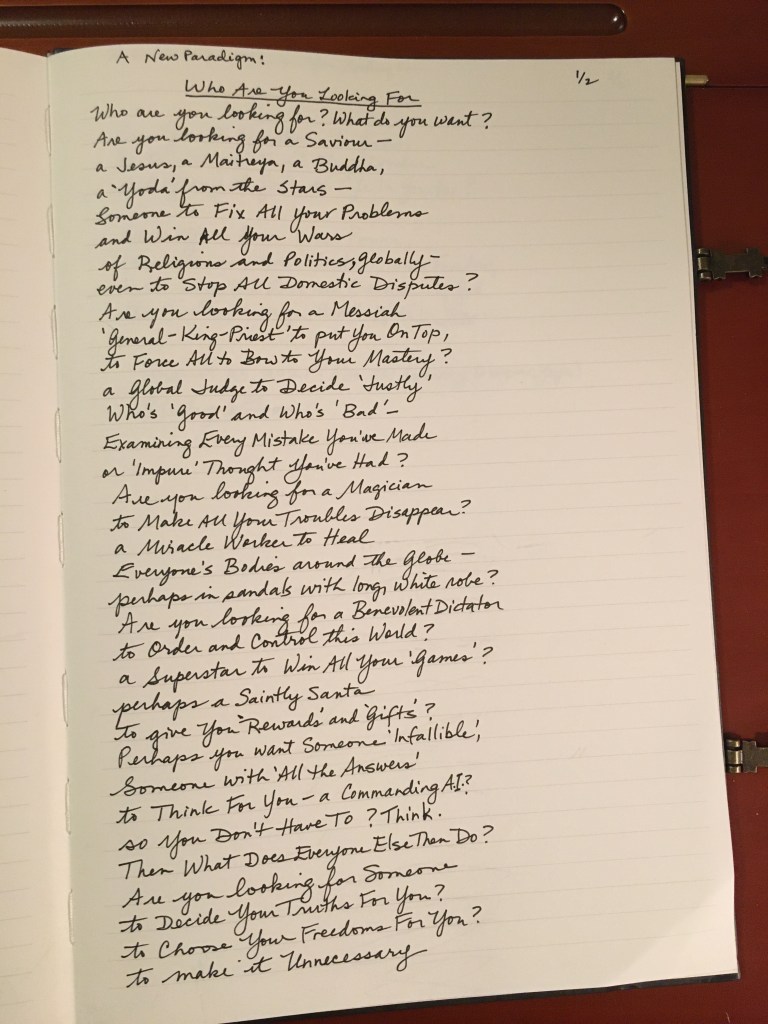 A New Paradigm!
1/2
Who Are You Looking For
Who are you looking for? What do you want?
Are you looking for a Saviour —
a Jesus, a Maitreya, a Buddha,
a 'Yoda' from the Stars —
Someone to Fix All Your Problems
and Win All Your Wars
of Religions and Politics, globally —
even to Stop All Domestic Disputes?
Are you looking for a Messiah
'General-King-Priest' to put You On Top,
to Force All to Bow to Your Mastery?
a Global Judge to Decide 'Justly'
Who's 'Good' and Who's 'Bad' —
Examining Every Mistake You've Made
or 'Impure' Thought You've Had?
Are you looking for a Magician
to Make All Your Troubles Disappear?
a Miracle Worker to Heal
Everyone's Bodies around the Globe —
perhaps in sandals with long, white robe?
Are you looking for a Benevolent Dictator
to Order and Control this World?
a Superstar to Win All Your 'Games'?
perhaps a Saintly Santa
to give You 'Rewards' and 'Gifts'?
Perhaps you want Someone 'Infallible',
Someone with 'All the Answers'
to Think For You — a Commanding A.I.?
so You Don't Have To? Think.
Then What Does Everyone Else Then Do?
Are you looking for Someone
to Decide Your Truths For You?
to Choose Your Freedoms For You?
to make it Unnecessary